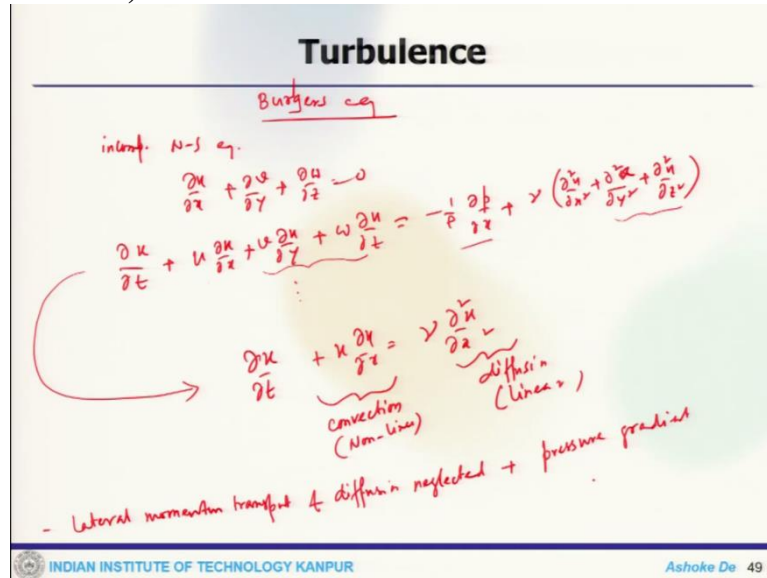 Turbulence
Burgers eq
incomp. N-S eq.
∂u/∂x + ∂v/∂y + ∂w/∂z = 0
∂u/∂t + u ∂u/∂x + v ∂u/∂y + w ∂u/∂z = -1/ρ ∂p/∂x + ν (∂²u/∂x² + ∂²u/∂y² + ∂²u/∂z²)
⋮
∂u/∂t + u ∂u/∂x = ν ∂²u/∂x²
convection diffusion
(Non-linear) (linear)
- Lateral momentum transport & diffusion neglected + pressure gradient
INDIAN INSTITUTE OF TECHNOLOGY KANPUR Ashoke De 49